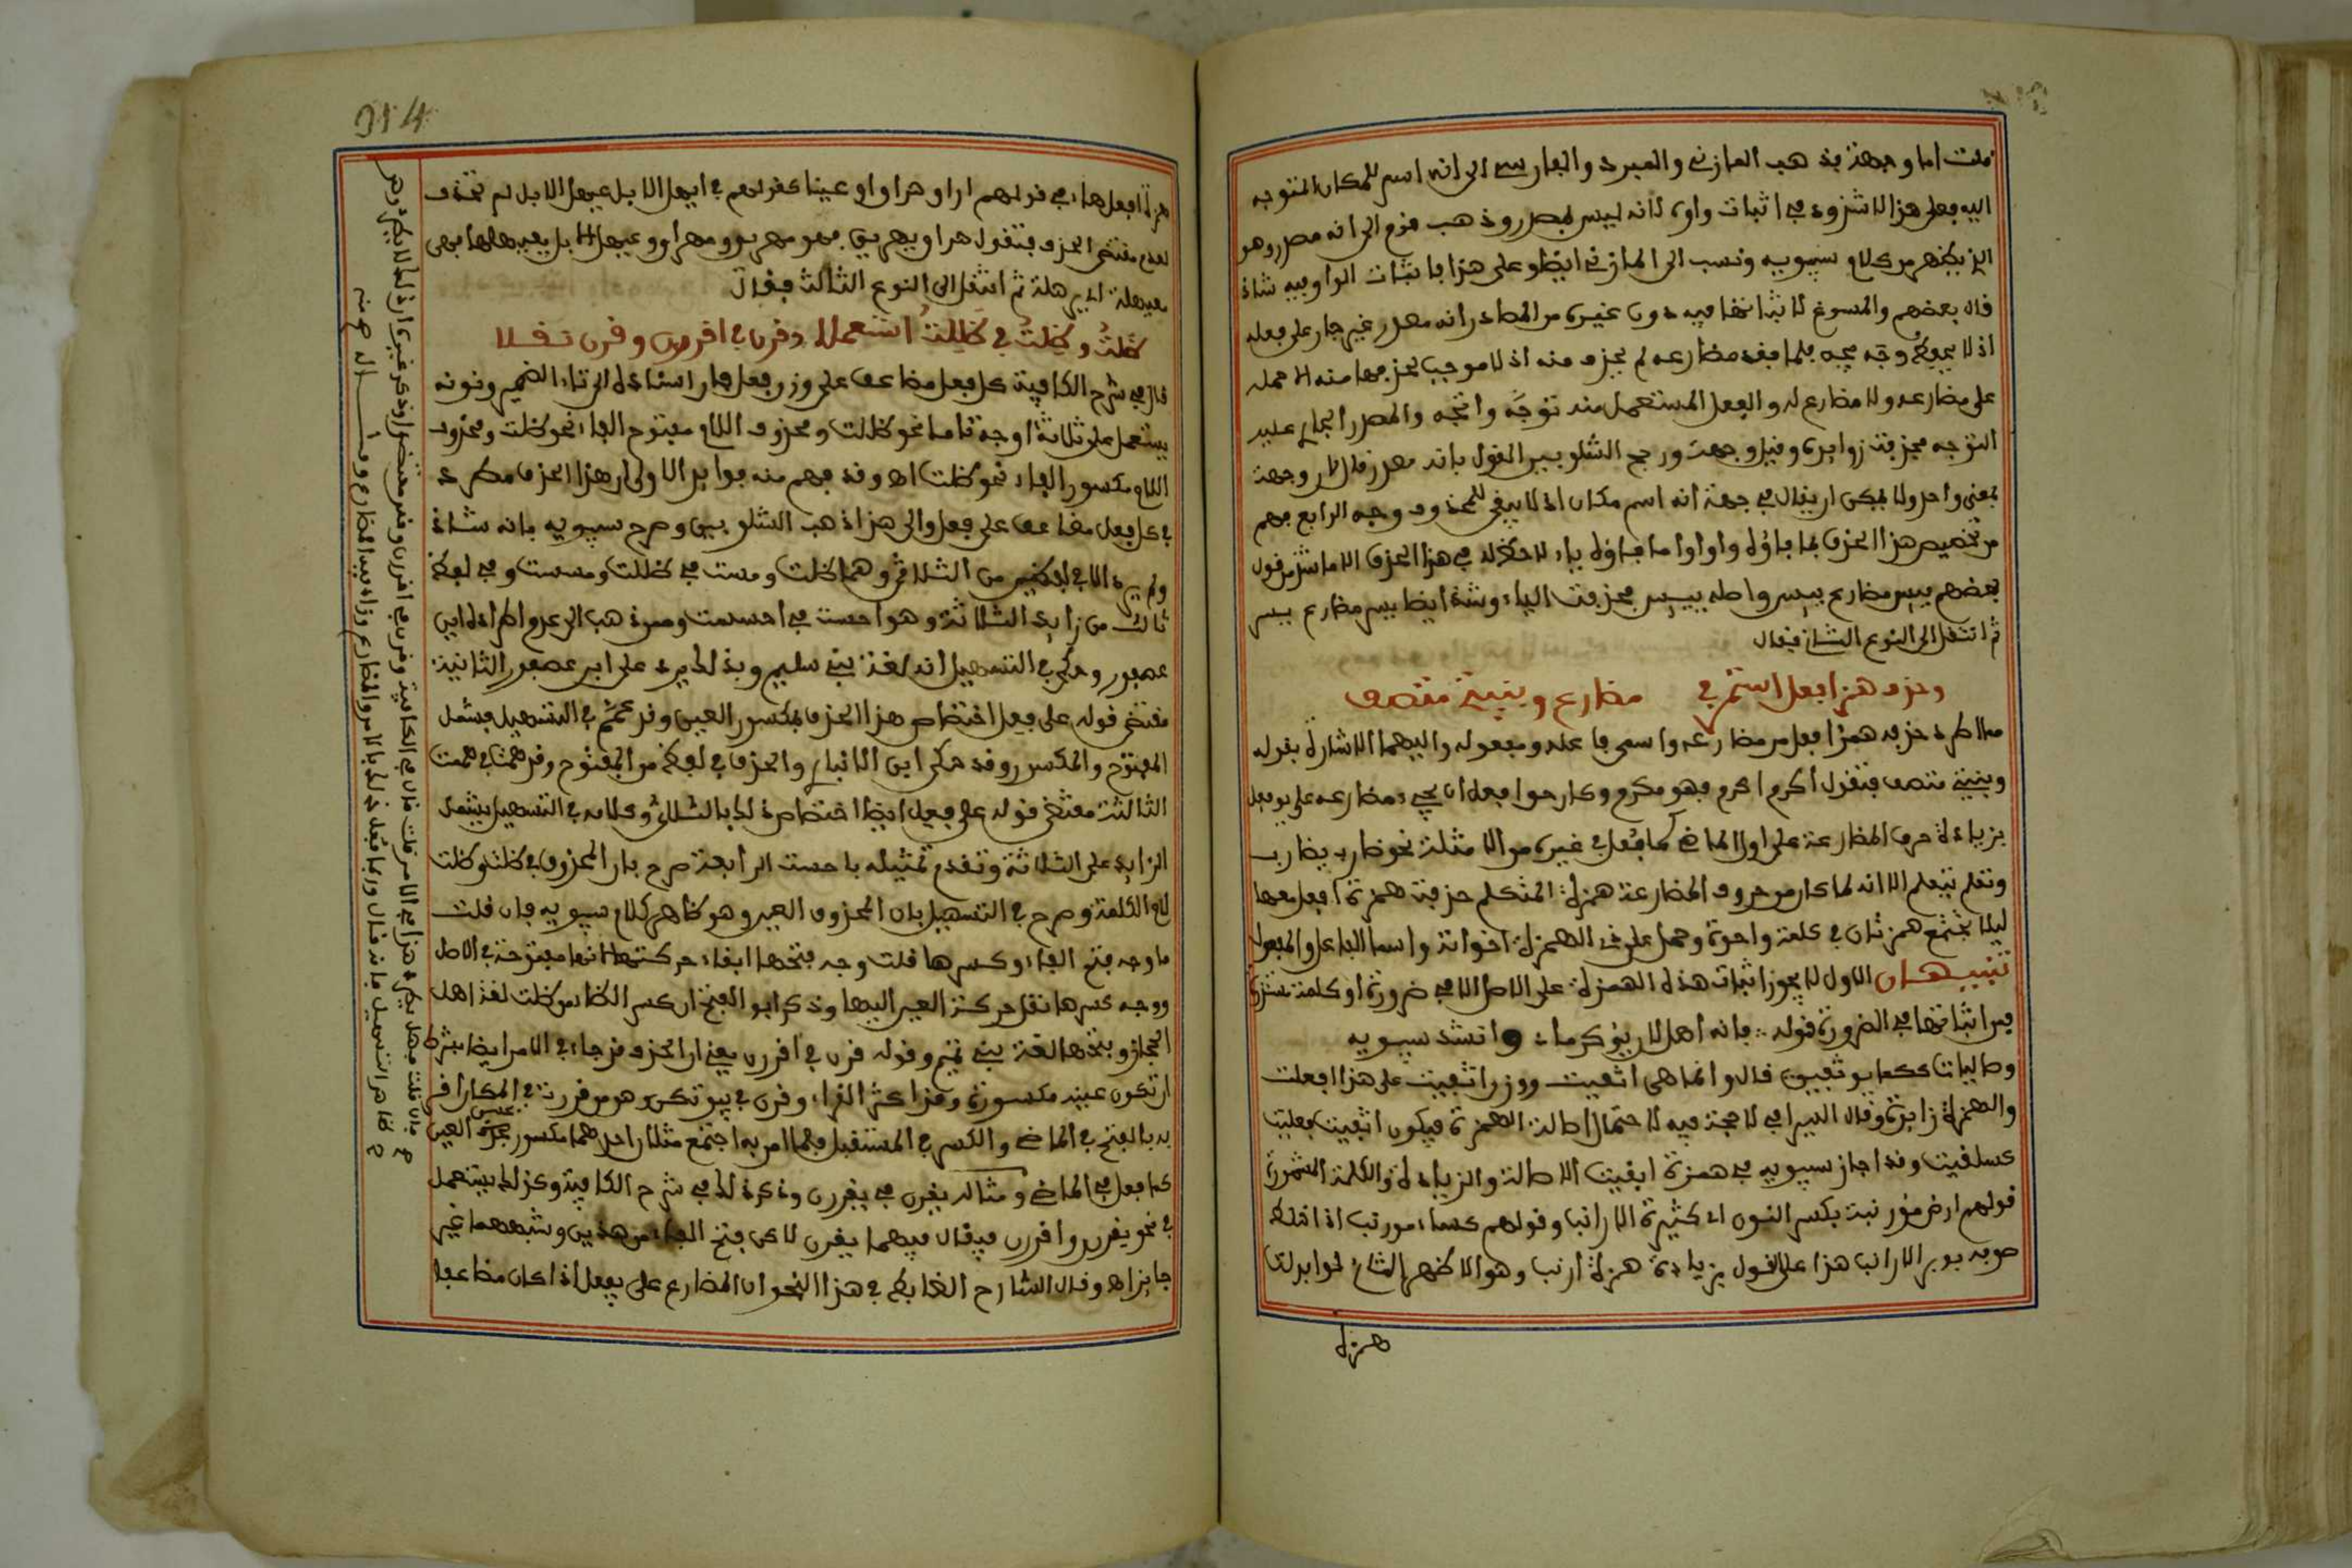 قلت اما وجهة فذهب المازني والمبرد والفارسي الى انه اسم للمكان المتوجه
اليه فعلى هذا لا شذوذ في اثبات واوه لانه ليس بمصدر وذهب قوم الى انه مصدر وهو
الذي يظهر من كلام سيبويه ونسب الى المازني ايضا وعلى هذا فاثبات الواو فيه شاذ
قال بعضهم والمسوغ لاثباتها فيه دون غيره من المصادر انه مصدر غير جار على فعله
اذ لا يحفظ وجه يجه فلما فقد مضارعه لم يحذف منه اذ لا موجب لحذفها منه الا حمله
على مضارعه ولا مضارع له والفعل المستعمل منه توجه واتجه والمصدر الجاري عليه
التوجه فحذفت زوايده وقيل وجهة ورجح الشلوبين القول بانه مصدر قال لان وجهة
بمعنى واحد ولا يمكن ان يقال في جهة انه اسم مكان اذ لا يبقى للحذف وجه الرابع فهم
من تخصيص هذا الحذف بما فاؤه واو ان ما فاؤه ياء لا حظ له في هذا الحذف الا ما شذ من قول
بعضهم يبس مضارع يبس واصله ييبس فحذفت الياء وشذ ايضا يس مضارع ييس
ثم انتقل الى النوع الثاني فقال
وحذف همز افعل استمر في مضارع وبنيتي متصف
مما اطرد حذفه همز افعل من مضارعه واسمي فاعله ومفعوله واليهما الاشارة بقوله
وبنيتي متصف فتقول أكرم اكرم فهو مكرم وكان حق افعل ان يجيء مضارعه على يوفعل
بزيادة حرف المضارعة على اول الماضي كما فعل في غيره من الامثلة نحو ضارب يضارب
وتعلم يتعلم الا انه لما كان من حروف المضارعة همزة المتكلم حذفت همزة افعل معها
ليلا تجتمع همزتان في كلمة واحدة وحمل على ذي الهمزة اخواته واسما الفاعل والمفعول
تنبيهان الاول لا يجوز اثبات هذه الهمزة على الاصل الا في ضرورة او كلمة مستندرة
فمن اثباتها في الضرورة قوله فانه أهل لان يؤكرما وانشد سيبويه
وصاليات ككما يوثفين قالوا انما هي اثفيت ووزن اثفيت على هذا افعلت
والهمزة زايدة وقال السيرافي لا حجة فيه لاحتمال اصالة الهمزة فيكون اثفيت فعليت
كسلقيت وقد اجاز سيبويه في همزة اثفيت الاصالة والزيادة والكلمة المشهورة
قولهم ارض مؤرنبة بكسر النون اي كثيرة الارانب وقولهم كساء مورنب اذا خلط
صوفه بوبر الارانب هذا على القول بزيادة همزة أرنب وهو الاظهر الثاني لو ابدلت
همزة
514
همزة افعل هاء في قولهم اراق هراق او عينا كقولهم في ايهل الابل عيهل الابل لم تحذف
لعدم مقتضى الحذف فتقول هراق يهريق فهو مهريق ومهراق وعيهل الابل يعيهلها فهي
معيهلة اي مهملة ثم انتقل الى النوع الثالث فقال
ظلت وظلت في ظللت استعملا وقرن في اقررن وقرن نقلا
قال في شرح الكافية كل فعل مضاعف على وزن فعل فان اسناده الى تاء الضمير ونونه
يستعمل على ثلاثة اوجه تاما نحو ظللت ومحذوف اللام مفتوح الفاء نحو ظلت ومحذوف
اللام مكسور الفاء نحو ظلت اه وقد فهم منه فوايد الاولى ان هذا الحذف مطرد
في كل فعل مضاعف على فعل والى هذا ذهب الشلوبين وصرح سيبويه بانه شاذ
ولم يرد الا في لفظين من الثلاثي وهما ظلت ومست في ظللت ومسست وفي لفظ
ثالث من زايد الثلاثة وهو احست في احسست وممن ذهب الى عدم اطراده ابن
عصفور وحكى في التسهيل انه لغة بني سليم وبذلك يرد على ابن عصفور الثانية
مقتضى قوله على فعل اختصاص هذا الحذف بمكسور العين وقد عمم في التسهيل فشمل
المفتوح والمكسور وقد حكى ابن الانباري الحذف في لفظ من المفتوح وهو همت في هممت
الثالثة مقتضى قوله على فعل ايضا اختصاص ذلك بالثلاثي وكلامه في التسهيل يشمل
الزايد على الثلاثة وتقدم تمثيله باحست الرابعة صرح بان المحذوف في ظلت وظلت
لام الكلمة وصرح في التسهيل بان المحذوف العين وهو ظاهر كلام سيبويه فان قلت
ما وجه فتح الفاء وكسرها قلت وجه فتحها ابقاء حركتها لانها مفتوحة في الاصل
ووجه كسرها نقل حركة العين اليها وذكر ابو الفتح ان كسر الظاء من ظلت لغة اهل
الحجاز وبفتحها لغة بني تميم وقوله قرن في اقررن يعني ان الحذف قد جاء في الامر ايضا بشرط
ان تكون عينه مكسورة وقرا اكثر القراء وقرن في بيوتكن وهو من قررت في المكان اقر
به بالفتح في الماضي والكسر في المستقبل فلما امر به اجتمع مثلان اولهما مكسور العين
كما فعل في الماضي ومثاله يقرن في يقررن وذكر ذلك في شرح الكافية وكذلك يستعمل
في نحو يقررن واقررن فيقال فيهما يقرن لاكن فتح الفاء من هذين وشبههما غير
جايز اه وقال الشارح الضابط في هذا النحو ان المضارع على يفعل اذا كان مضاعفا